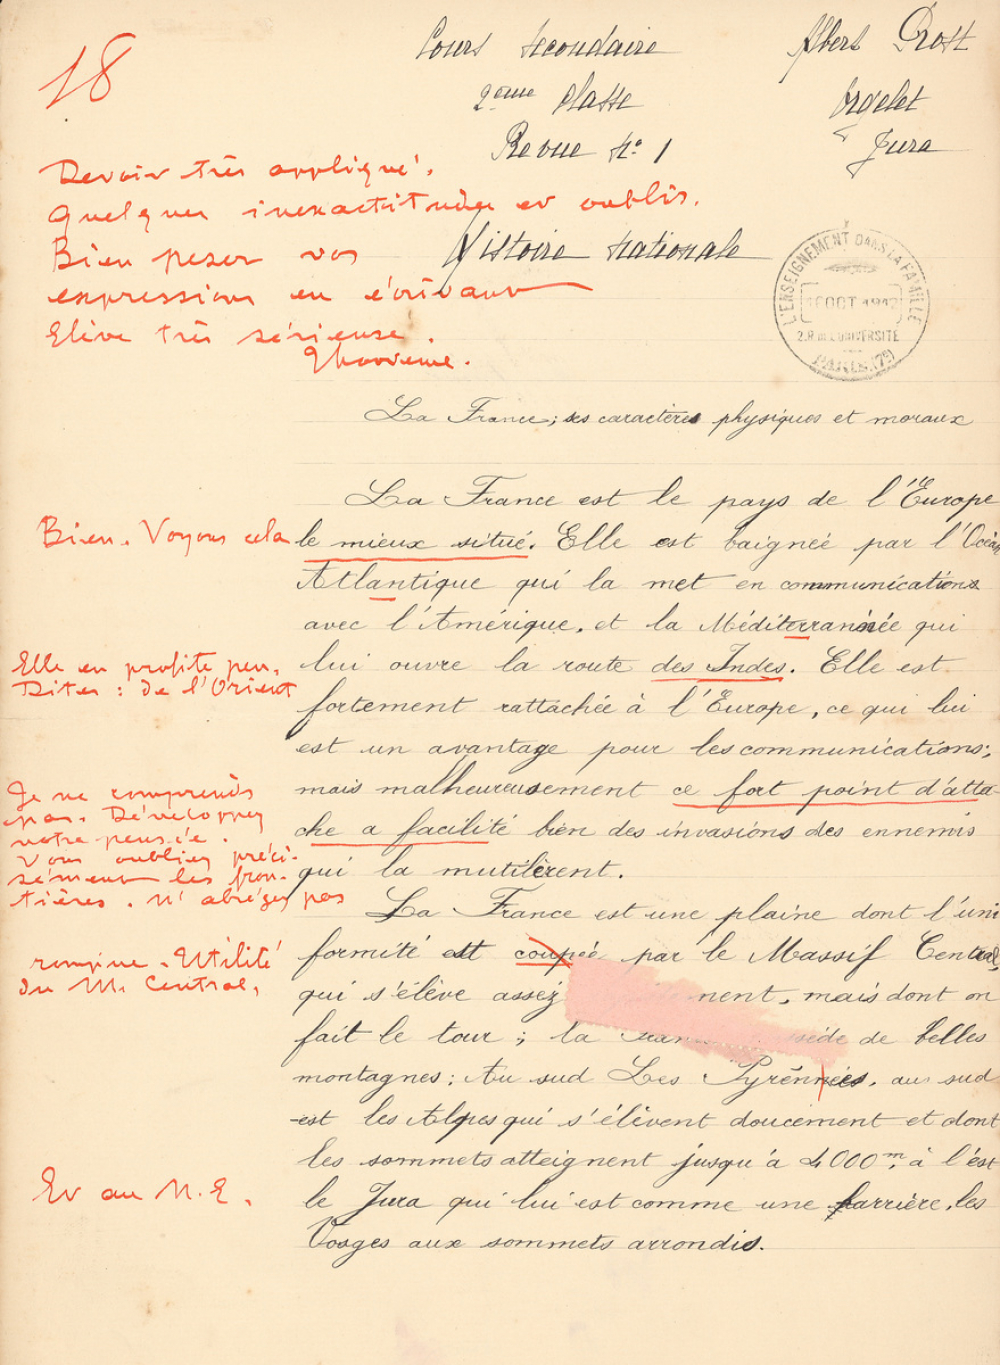 18
Cours Secondaire
2ème Classe
Revue No 1
Albert Prost
Orgelet
Jura
Devoir très appliqué.
Quelques inexactitudes et oublis.
Bien peser vos
expressions en écrivant
Elève très sérieuse.
Histoire Nationale
L'ENSEIGNEMENT DANS LA FAMILLE
OCT 1912
2.R de L'UNIVERSITÉ
PARIS (7e)
La France; ses caractères physiques et moraux
La France est le pays de l'Europe
Bien. Voyons cela
le mieux situé. Elle est baignée par l'Océan
Atlantique qui la met en communications
avec l'Amérique, et la Méditerranée qui
Elle en profite peu.
Dites : de l'Orient
lui ouvre la route des Indes. Elle est
fortement rattachée à l'Europe, ce qui lui
est un avantage pour les communications;
Je ne comprends
pas. Développez
votre pensée.
Vous oubliez préci-
sément les fron-
tières. N'abrégez pas
mais malheureusement ce fort point d'atta-
che a facilité bien des invasions des ennemis
qui la mutilèrent.
La France est une plaine dont l'uni
formité est coupée par le Massif Central,
rompue - Utilité
du M. Central,
qui s'élève assez nent, mais dont on
fait le tour ; la sède de belles
montagnes : Au sud Les Pyrénnées, au sud
-est les Alpes qui s'élèvent doucement et dont
les sommets atteignent jusqu'à 4000m, à l'est
Et au N.E.
le Jura qui lui est comme une barrière, les
Vosges aux sommets arrondis.